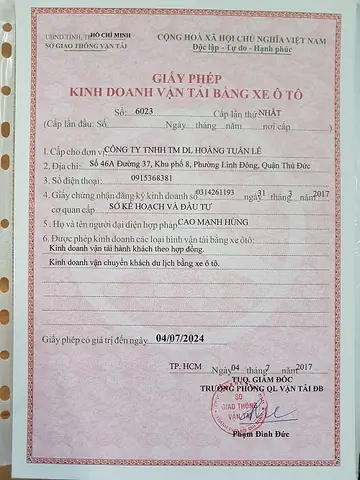 UBND TỈNH, TP. HỒ CHÍ MINH
SỞ GIAO THÔNG VẬN TẢI
CỘNG HOÀ XÃ HỘI CHỦ NGHĨA VIỆT NAM
Độc lập - Tự do - Hạnh phúc
GIẤY PHÉP
KINH DOANH VẬN TẢI BẰNG XE Ô TÔ
Số: 6023 Cấp lần thứ NHẤT
(Cấp lần đầu: Số Ngày tháng năm nơi cấp )
1. Cấp cho đơn vị: CÔNG TY TNHH TM DL HOÀNG TUẤN LÊ
2. Địa chỉ: Số 46A Đường 37, Khu phố 8, Phường Linh Đông, Quận Thủ Đức
3. Số điện thoại: 0915368381
4. Giấy chứng nhận đăng ký kinh doanh số 0314261193 ngày 31 tháng 3 năm 2017
cơ quan cấp SỞ KẾ HOẠCH VÀ ĐẦU TƯ
5. Họ và tên người đại diện hợp pháp CAO MẠNH HÙNG
6. Được phép kinh doanh các loại hình vận tải bằng xe ôtô:
Kinh doanh vận tải hành khách theo hợp đồng.
Kinh doanh vận chuyển khách du lịch bằng xe ô tô.
Giấy phép có giá trị đến ngày 04/07/2024
TP. HCM Ngày 04 tháng 7 năm 2017
TUQ. GIÁM ĐỐC
TRƯỞNG PHÒNG QL VẬN TẢI ĐB
SỞ
GIAO THÔNG
VẬN TẢI
Phạm Đình Đức